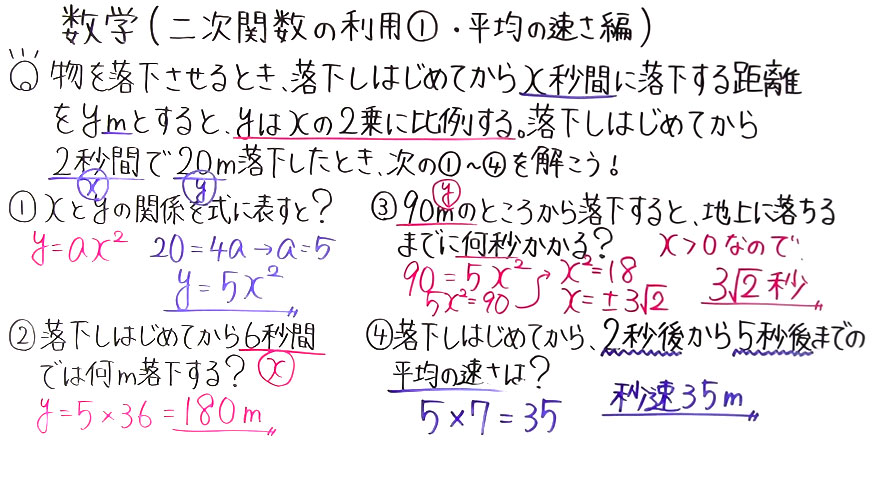 数学(二次関数の利用①・平均の速さ編)
物を落下させるとき、落下しはじめてからx秒間に落下する距離
をymとすると、yはxの2乗に比例する。落下しはじめてから
2秒間で20m落下したとき、次の①~④を解こう!
x y
①xとyの関係を式に表すと?
y=ax² 20=4a→a=5
y=5x²
②落下しはじめてから6秒間
では何m落下する? x
y=5×36=180m
y
③90mのところから落下すると、地上に落ちる
までに何秒かかる? x>0なので
90=5x² x²=18
5x²=90 x=±3√2 3√2秒
④落下しはじめてから、2秒後から5秒後までの
平均の速さは?
5×7=35 秒速35m